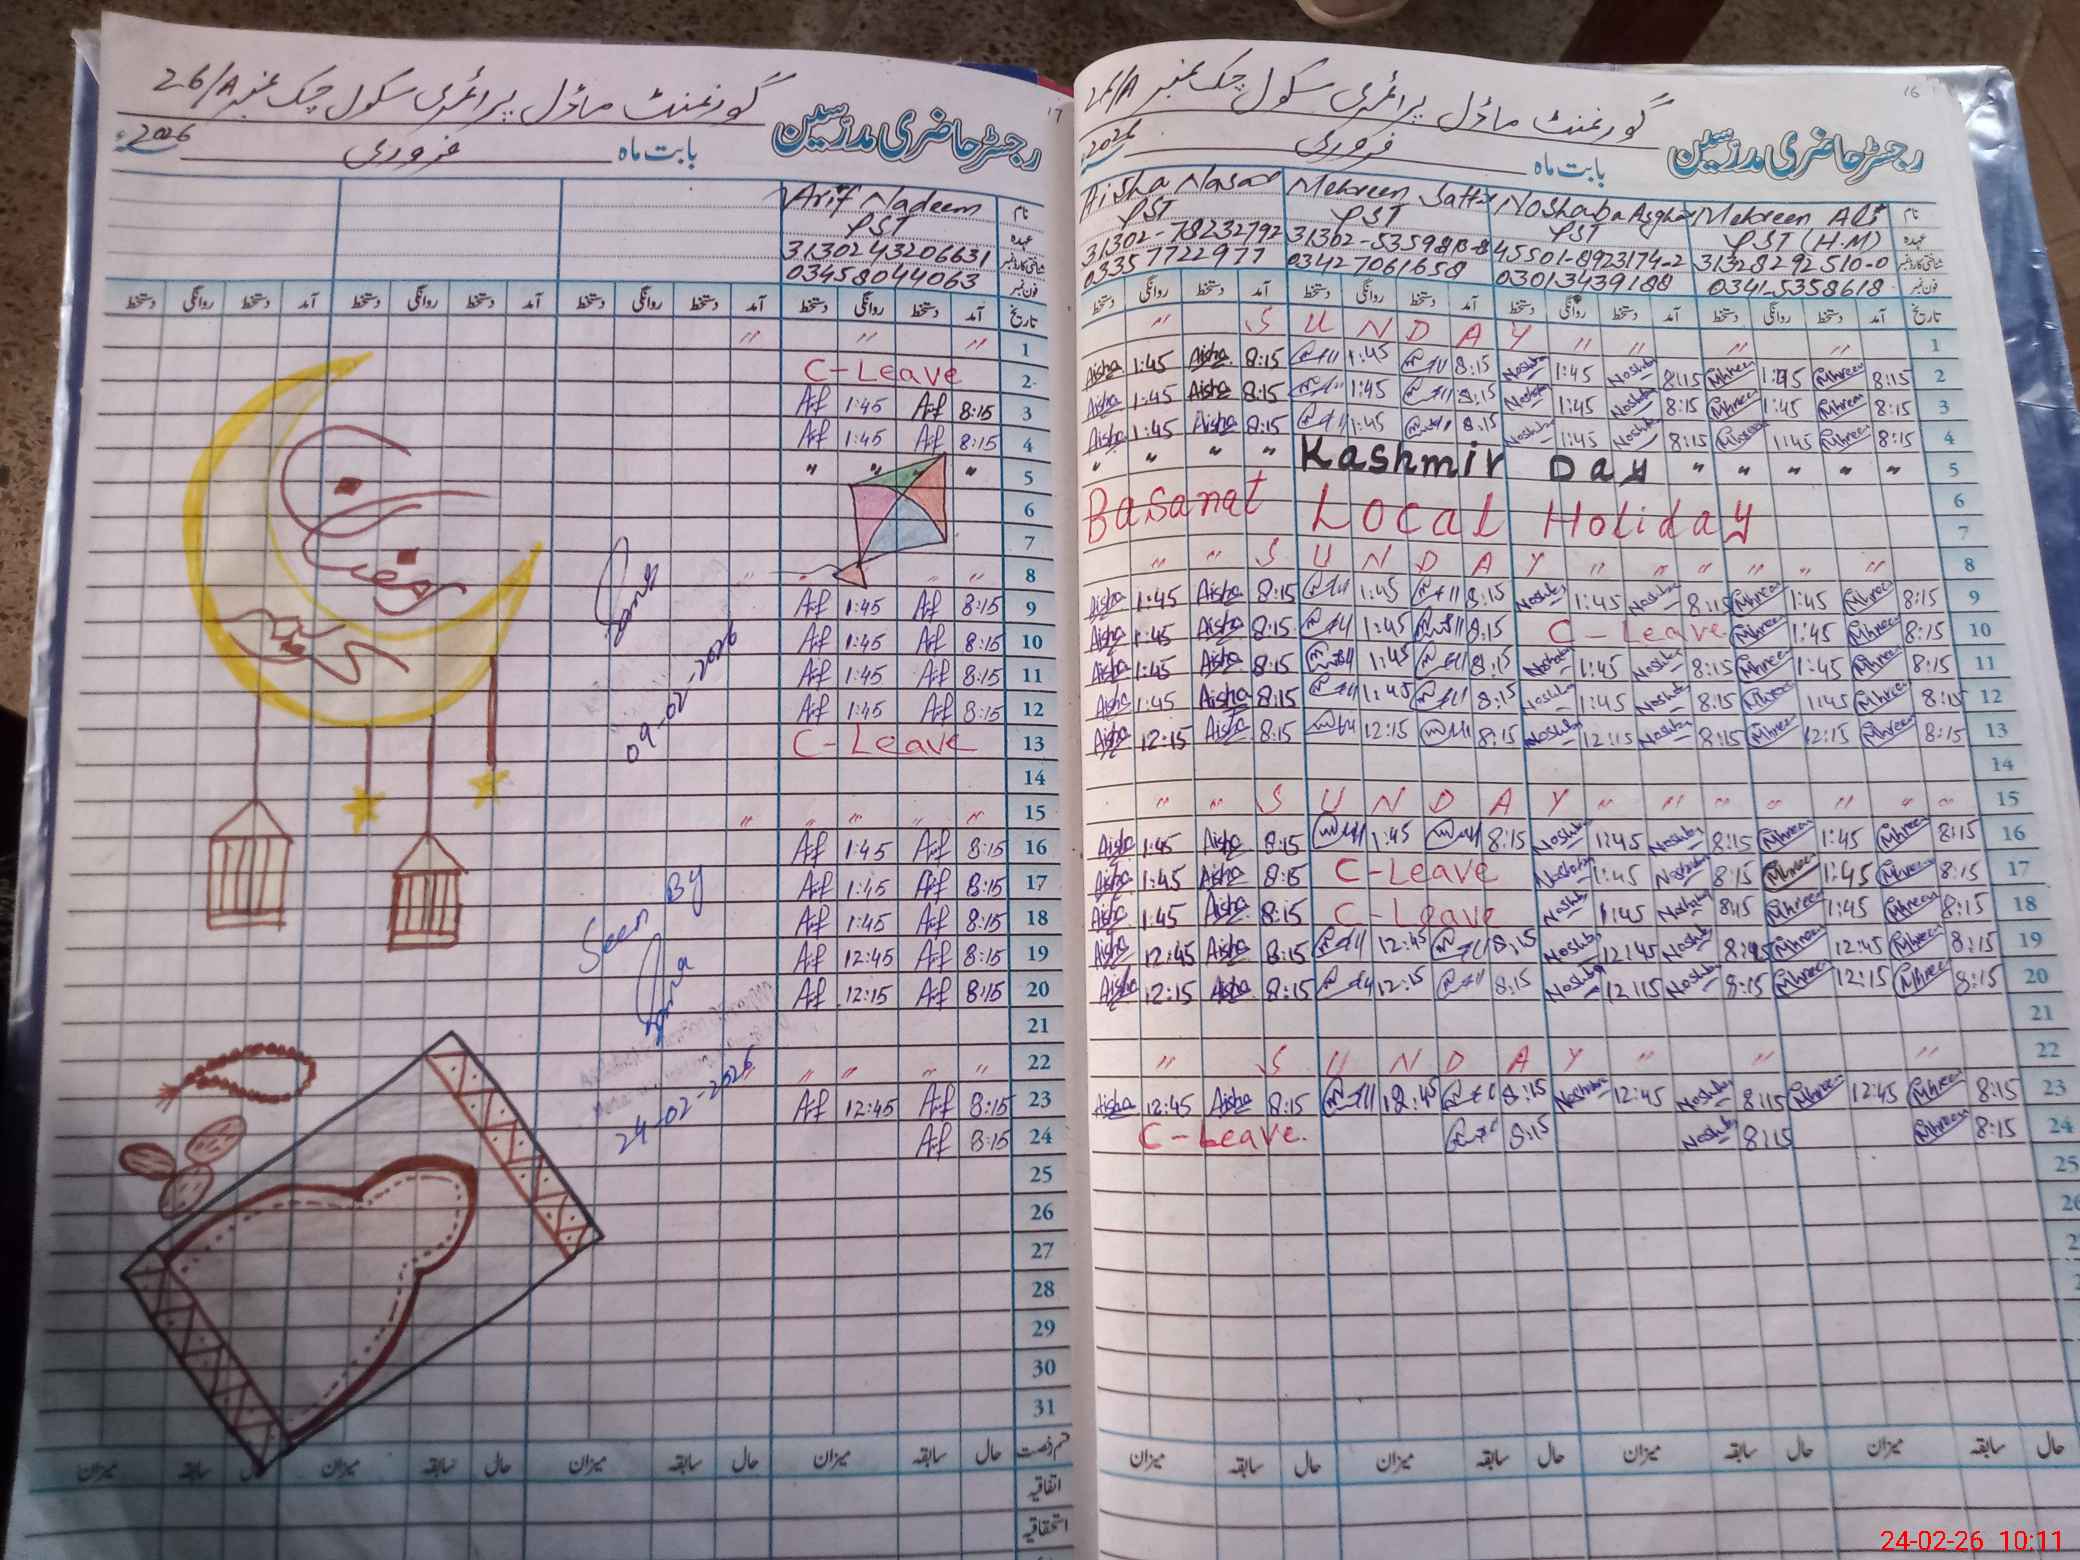 گورنمنٹ ماڈل پرائمری سکول چک نمبر 26/A
رجسٹر حاضری مدرسین
بابت ماہ فروری 2026ء
17
نام Arif Nadeem
عہدہ PST
شناختی کارڈ نمبر 3130243206631
فون نمبر 03458044063
تاریخ آمد دستخط روانگی دستخط آمد دستخط روانگی دستخط آمد دستخط روانگی دستخط آمد دستخط روانگی دستخط
1 " " "
2 C-Leave
3 8:15 Aif 1:45 Aif
4 8:15 Aif 1:45 Aif
5 " " "
6
7
8 " " " "
9 8:15 Aif 1:45 Aif
10 8:15 Aif 1:45 Aif
11 8:15 Aif 1:45 Aif
12 8:15 Aif 1:45 Aif
13 C-Leave
14
15 " " " " "
16 8:15 Aif 1:45 Aif
17 8:15 Aif 1:45 Aif
18 8:15 Aif 1:45 Aif
19 8:15 Aif 12:45 Aif
20 8:15 Aif 12:15 Aif
21
22 " " " " "
23 8:15 Aif 12:45 Aif
24 8:15 Aif
25
26
27
28
29
30
31
09-02-2026
Seen By
24-02-2026
قسم رخصت حال سابقہ میزان حال سابقہ میزان حال سابقہ میزان حال سابقہ میزان
اتفاقیہ
استحقاقیہ
گورنمنٹ ماڈل پرائمری سکول چک نمبر 26/A
رجسٹر حاضری مدرسین
بابت ماہ فروری 2026ء
16
نام Aisha Nasar Mehreen Satt Noshaba Asghar Mehreen Ali
عہدہ PST PST PST PST (H.M)
31302-78232792 45501-8923174-2 31328292510-0 شناختی کارڈ نمبر
03357722977 03427061658 03013439188 0341-5358618 فون نمبر
تاریخ آمد دستخط روانگی دستخط آمد دستخط روانگی دستخط آمد دستخط روانگی دستخط آمد دستخط روانگی دستخط
" SUNDAY " " " " 1
Aisha 1:45 Aisha 8:15 1:45 8:15 Noshba 1:45 Noshba 8:15 Mhreen 1:45 Mhreen 8:15 2
Aisha 1:45 Aisha 8:15 1:45 8:15 Noshba 1:45 Noshba 8:15 Mhreen 1:45 Mhreen 8:15 3
Aisha 1:45 Aisha 8:15 1:45 8:15 Noshba 1:45 Noshba 8:15 Mhreen 1:45 Mhreen 8:15 4
" " " " Kashmir Day " " " " " 5
Basanat Local Holiday 6
7
" " SUNDAY " " " " " " 8
Aisha 1:45 Aisha 8:15 1:45 8:15 Noshba 1:45 Noshba 8:15 Mhreen 1:45 Mhreen 8:15 9
Aisha 1:45 Aisha 8:15 1:45 8:15 C-Leave Mhreen 1:45 Mhreen 8:15 10
Aisha 1:45 Aisha 8:15 1:45 8:15 Noshba 1:45 Noshba 8:15 Mhreen 1:45 Mhreen 8:15 11
Aisha 1:45 Aisha 8:15 1:45 8:15 Noshba 1:45 Noshba 8:15 Mhreen 1:45 Mhreen 8:15 12
Aisha 12:15 Aisha 8:15 12:15 8:15 Noshba 12:15 Noshba 8:15 Mhreen 12:15 Mhreen 8:15 13
14
" " SUNDAY " " " " " " " 15
Aisha 1:45 Aisha 8:15 1:45 8:15 Noshba 1:45 Noshba 8:15 Mhreen 1:45 Mhreen 8:15 16
Aisha 1:45 Aisha 8:15 C-Leave Noshba 1:45 Noshba 8:15 Mhreen 1:45 Mhreen 8:15 17
Aisha 1:45 Aisha 8:15 C-Leave Noshba 1:45 Noshba 8:15 Mhreen 1:45 Mhreen 8:15 18
Aisha 12:45 Aisha 8:15 12:45 8:15 Noshba 12:45 Noshba 8:15 Mhreen 12:45 Mhreen 8:15 19
Aisha 12:15 Aisha 8:15 12:15 8:15 Noshba 12:15 Noshba 8:15 Mhreen 12:15 Mhreen 8:15 20
21
" SUNDAY " " " 22
Aisha 12:45 Aisha 8:15 12:45 8:15 Noshba 12:45 Noshba 8:15 Mhreen 12:45 Mhreen 8:15 23
C-Leave. 8:15 Noshba 8:15 Mhreen 8:15 24
25
26
حال سابقہ میزان حال سابقہ میزان حال سابقہ میزان حال سابقہ میزان
24-02-26 10:11